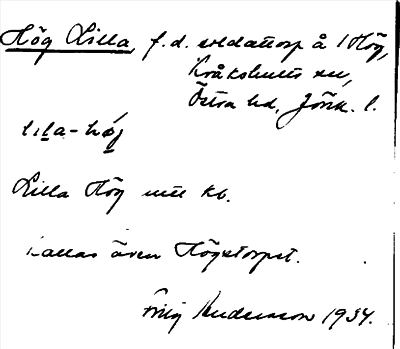 Hög Lilla, f.d. soldattorp å 1 Hög,
Kråkshults sn,
Östra hd, Jönk. l.
lila-høj
Lilla Hög utt kb.
Kallas även Högstorpet.
Andersson 1934.